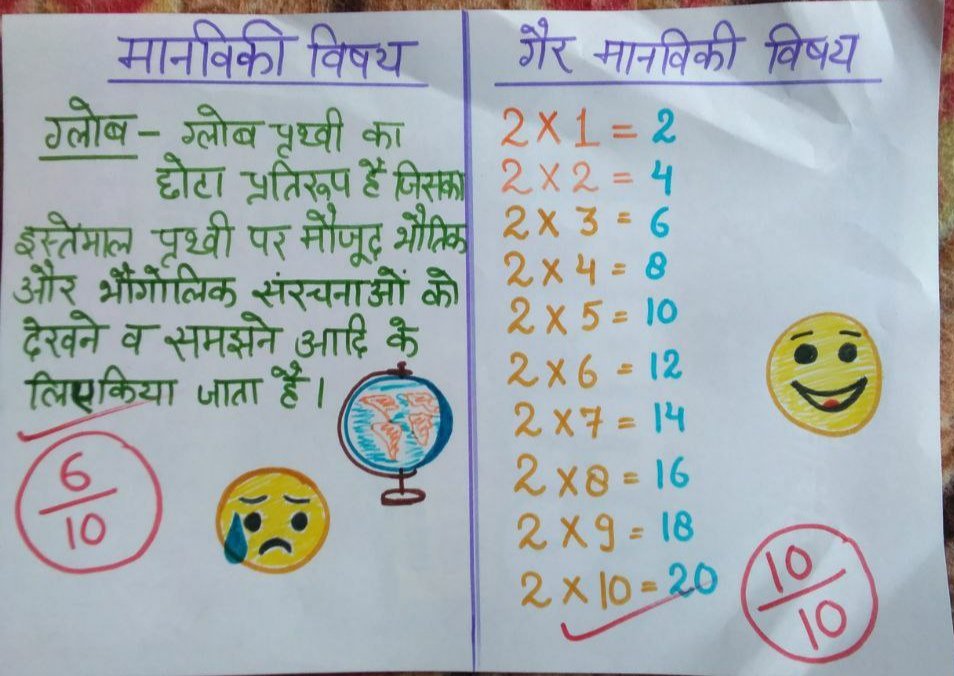 मानविकी विषय
ग्लोब – ग्लोब पृथ्वी का
छोटा प्रतिरूप है जिसका
इस्तेमाल पृथ्वी पर मौजूद भौतिक
और भौगोलिक संरचनाओं को
देखने व समझने आदि के
लिए किया जाता है।
6
10
गैर मानविकी विषय
2 × 1 = 2
2 × 2 = 4
2 × 3 = 6
2 × 4 = 8
2 × 5 = 10
2 × 6 = 12
2 × 7 = 14
2 × 8 = 16
2 × 9 = 18
2 × 10 = 20
10
10